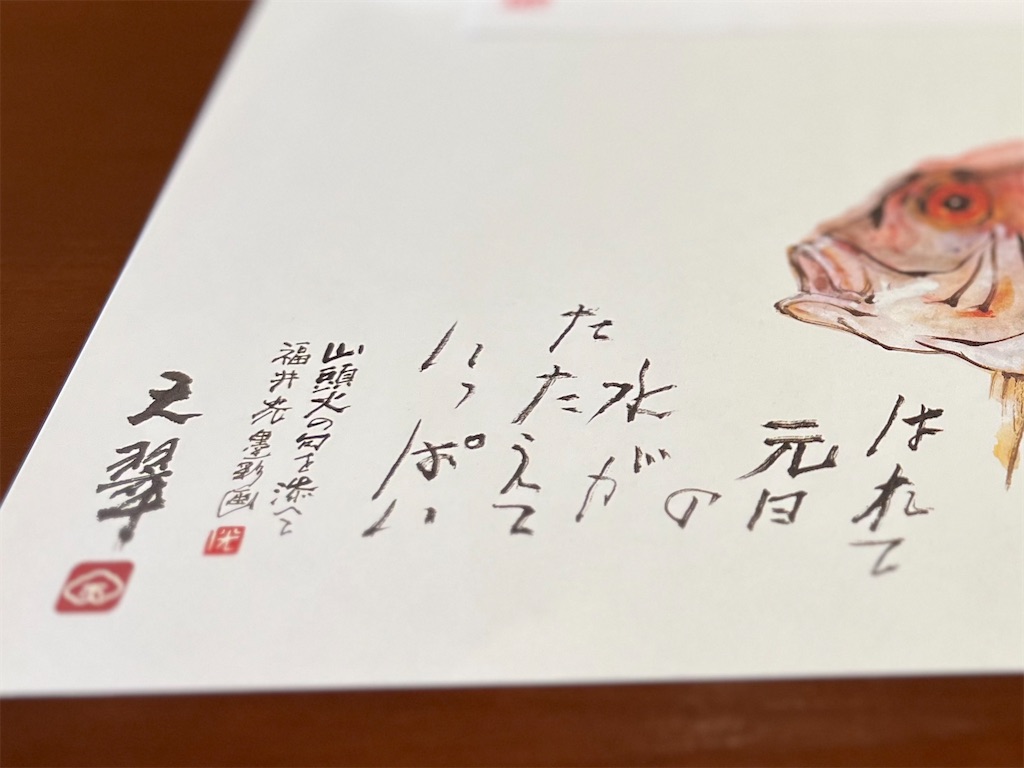 はれて
元日
の
水が
たたえて
いっぱい
山頭火の句を添へて
福井光墨彩画
光